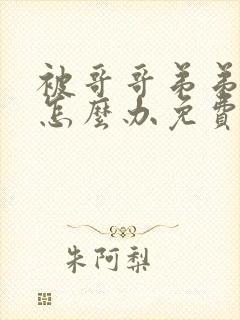 被哥哥弟弟
怎麼办免費
朱阿梨